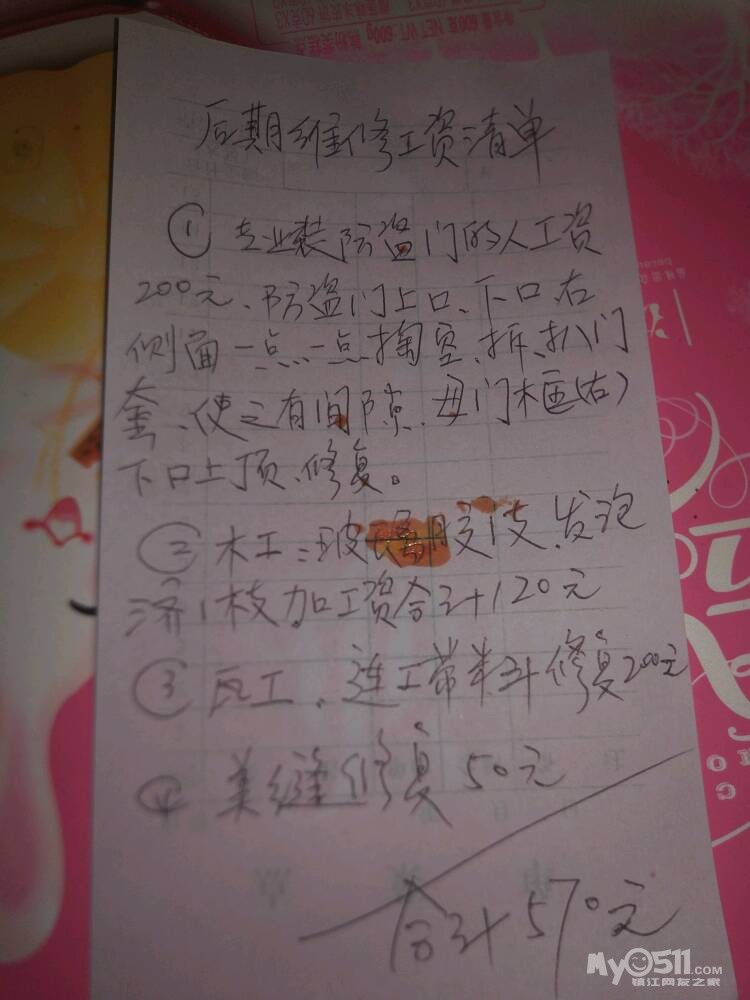 后期维修工资清单
① 专业装防盗门的人工资
200元、防盗门上口、下口右
侧面一点一点掏空、拆、扒门
套、使之有间隙、毋门框(右)
下口上顶、修复。
② 木工:玻璃胶1支、发泡
济1枝加工资合计120元
③ 瓦工、连工带料计修复200元
④ 美缝修复50元
合计570元
My0511.com
镇江网友之家